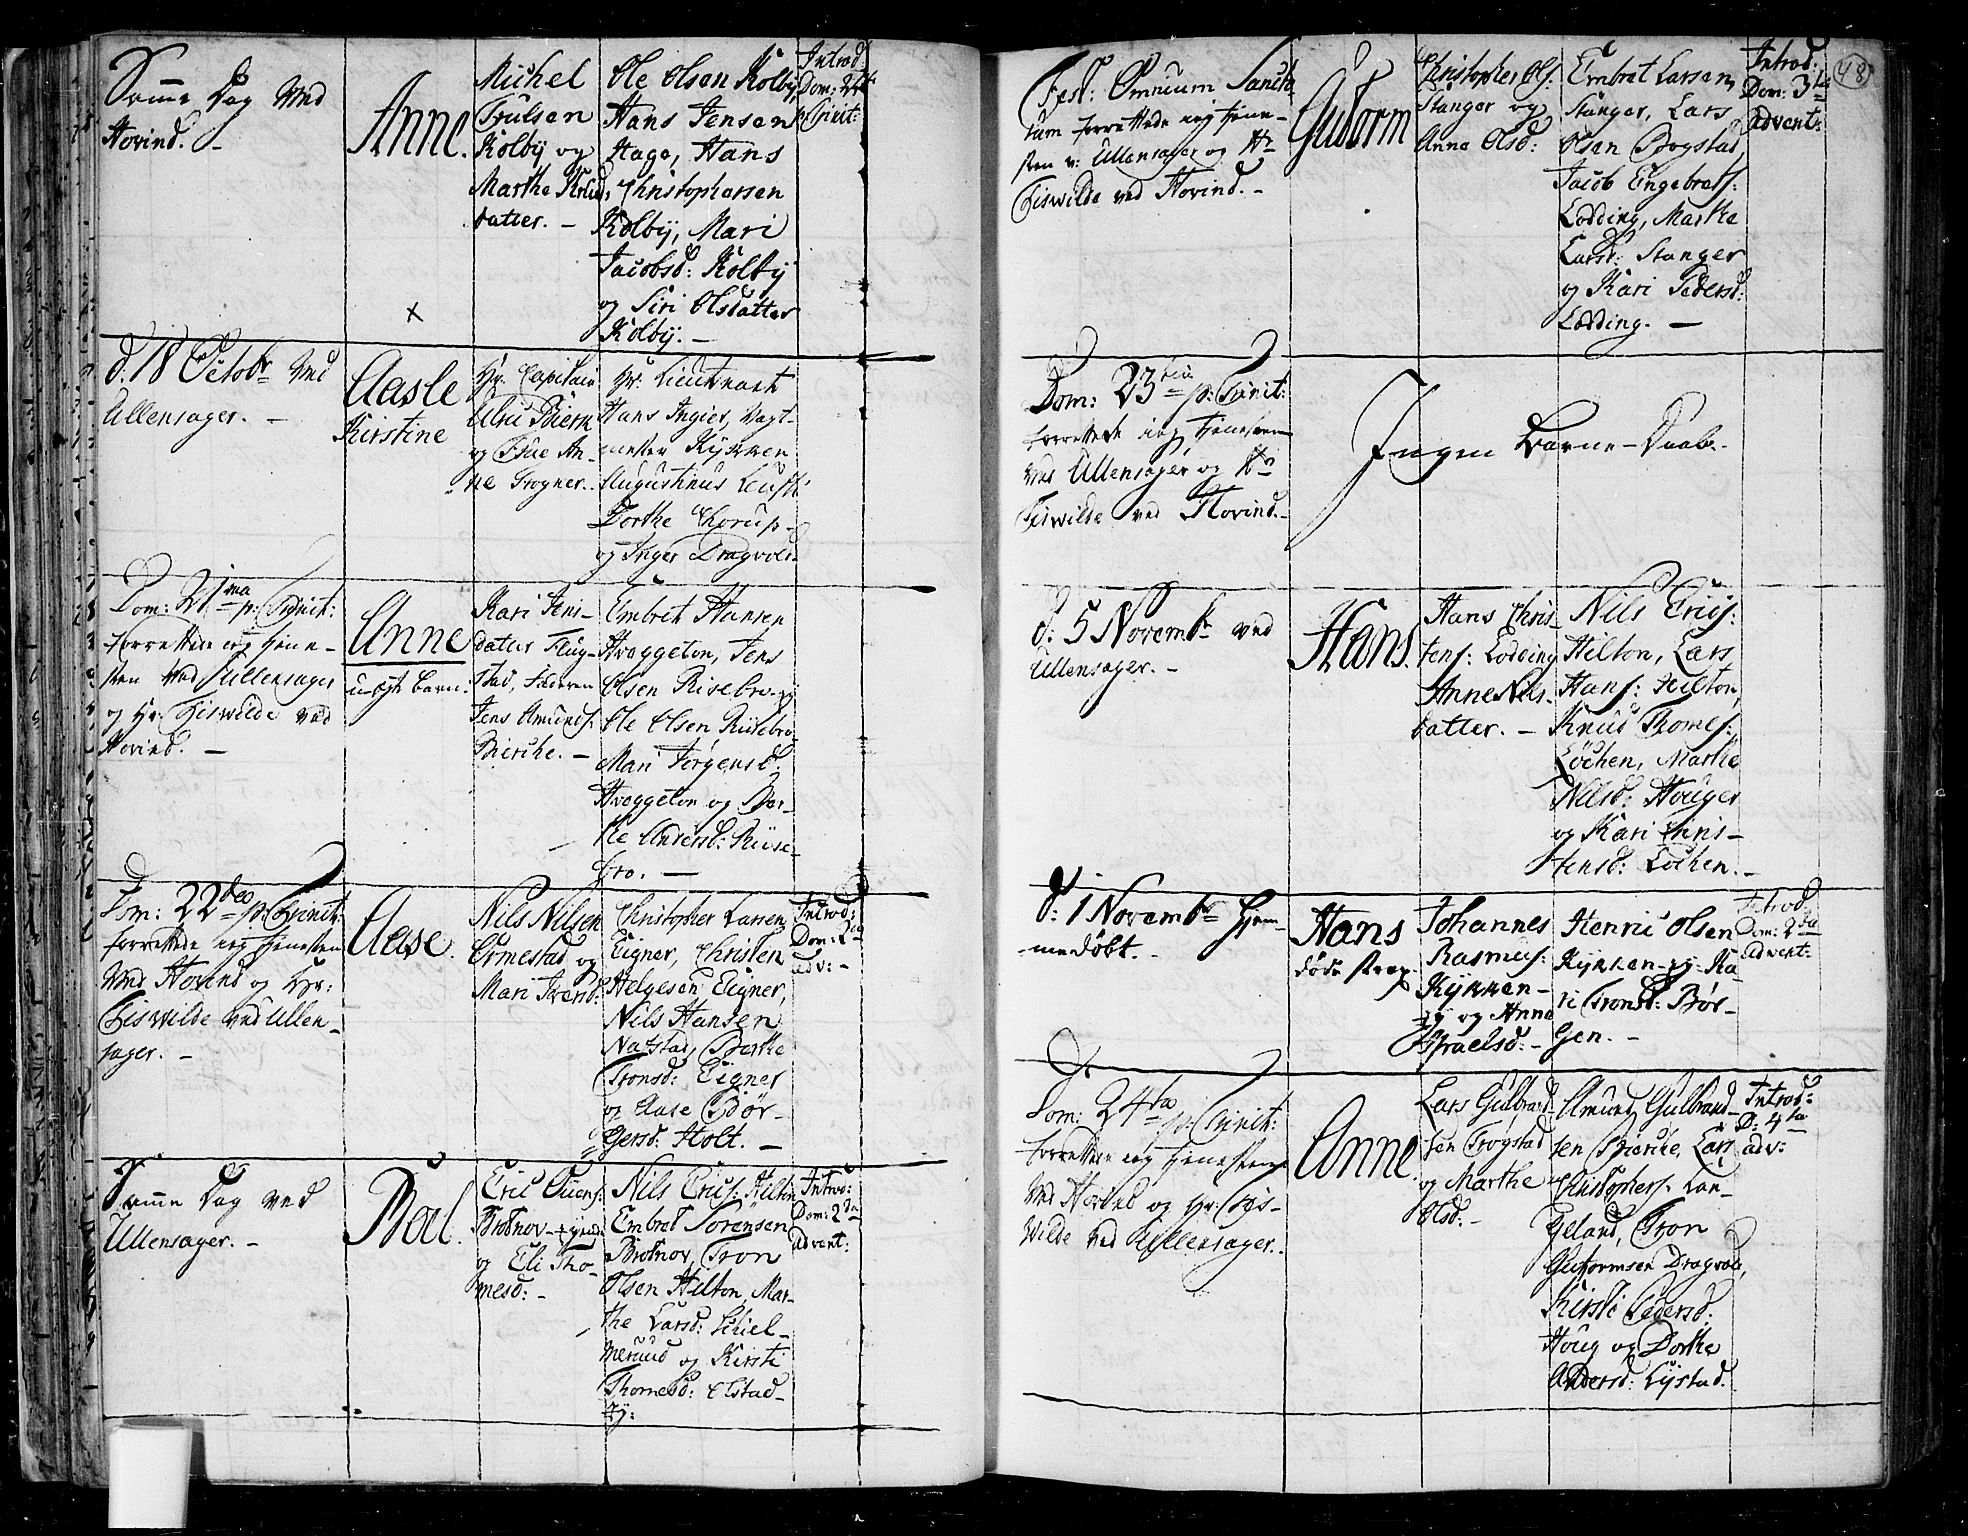 Samme Dag ved
Hovind. -
Anne.
Michel
Trulsen
Kolby og
Marthe Knud,
datter. -
Ole Olsen Kolby,
Hans Jensen
Hage, Hans
Christophersen
Kolby, Mari
Jacobsd: Kolby
og Siri Olsdatter
Kolby. -
Introd
Dom: 22
p. Trinit:
d. 18 Octobr ved
Ullensager. -
Aasle
Kirstine
Hr. Capitain
Ulric
og Frue An-
ne Grogner.
Hr. Lieutnant
Hans Ingier, Vagt-
mester Kykken
Augustinus
Dorthe Thorup
og Inger Dragvold.
Dom: 21ma p: Trinit:
forrettede ieg tiene-
sten ved Ullensager
og Hr. Tiswilde ved
Hovind. -
Anne
u-ægte barn.
Kari Jens-
datter Flug-
stad, Faderen
Jens Amunds:
Bierche. -
Embret Hansen
Hvaggeton, Jens
Olsen Risebro-ey
Ole Olsen Riisebro,
Mari Jørgensd:
Hvaggeton og Ber-
the Andersd: Riise-
bro. -
Dom: 22de p: Trinit:
forrettede ieg tienesten
ved Hovind og Hr:
Tiswilde ved Ullen-
sager. -
Aase.
Nils Nilsen
Ermestad og
Mari Iversd:
Christopher Larsen
Eigner, Christen
Helgesen Eigner,
Nils Hansen
Natstad, Berthe
Tronsd: Eigner
og Aase Bør-
gersd: Holt. -
Introd:
Dom: 2da
adv: -
Samme Dag ved
Ullensager. -
Roal.
Eric Ovens:
Brotnov-eyed
og Eli Tho-
mesd: -
Nils Erics: Hilton
Embret Sørensen
Brotnov, Tron
Olsen Hilton, Mar-
the Larsd: Schiel-
merud og Kirsti
Thomesd: Elstad-
ey:
Introd:
Dom: 2da
Advent:
48
Fest: Omnium Sancto
rum forrettede ieg tiene-
sten v: Ullensager og Hr
Tiswilde ved Hovind. -
Gutorm
Christopher Ols:
Stanger og
Anne Olsd:
Embret Larsen
Stanger, Lars
Olsen Bogstad,
Jacob Engebrets:
Lodding, Marthe
Larsd: Stanger
og Kari Pedersd:
Lodding. -
Introd:
Dom: 3tia
advent:
Dom: 23tia p: Trinit:
forrettede ieg tienesten
ved Ullensager og Hr
Tiswilde ved Hovind. -
Ingen Barne-Daab.
d: 5 Novembr ved
Ullensager. -
Hans.
Hans Chris-
tens: Lodding
Anne Nils-
datter. -
Nils Erics:
Hilton, Lars
Hans: Hilton,
Knud Thomes:
Løchen, Marthe
Nilsd: Houger
og Kari Chris-
tensd: Løchen. -
d: 1 Novembr Hjem-
medøbt. -
Hans
døde strax.
Johannes
Rasmus:
Kykken-
ey og Anne
Israelsd: -
Henric Olsen
Kykken-ey. Ka
ri Tronsd: Bør-
gen. -
Introd
Dom: 2da
advent:
Dom: 24ta p: Trinit:
forrettede ieg tienesten
ved Hovind og Hr: Tis-
wilde ved Ullensager.
Anne.
Lars Gulbrand-
sen Trogstad
og Marthe
Olsd: -
Amund Gulbrand-
sen Bierche, Lars
Christophers: Lan-
geland, Tron
Gutormsen Dragvold,
Kirsti Pedersd:
Houg og Dorthe
Andersd: Lystad.
Introd:
D: 4ta
adv: